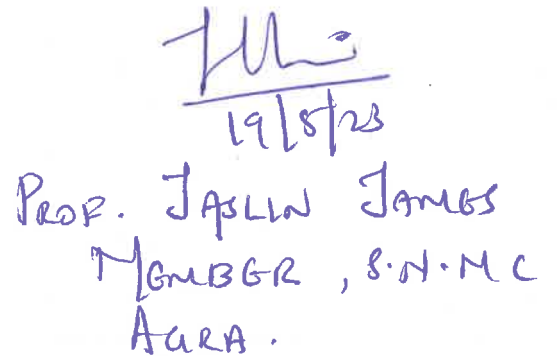 19/5/23
PROF. JASLIN JAMES
MEMBER, S.N.MC
AGRA.